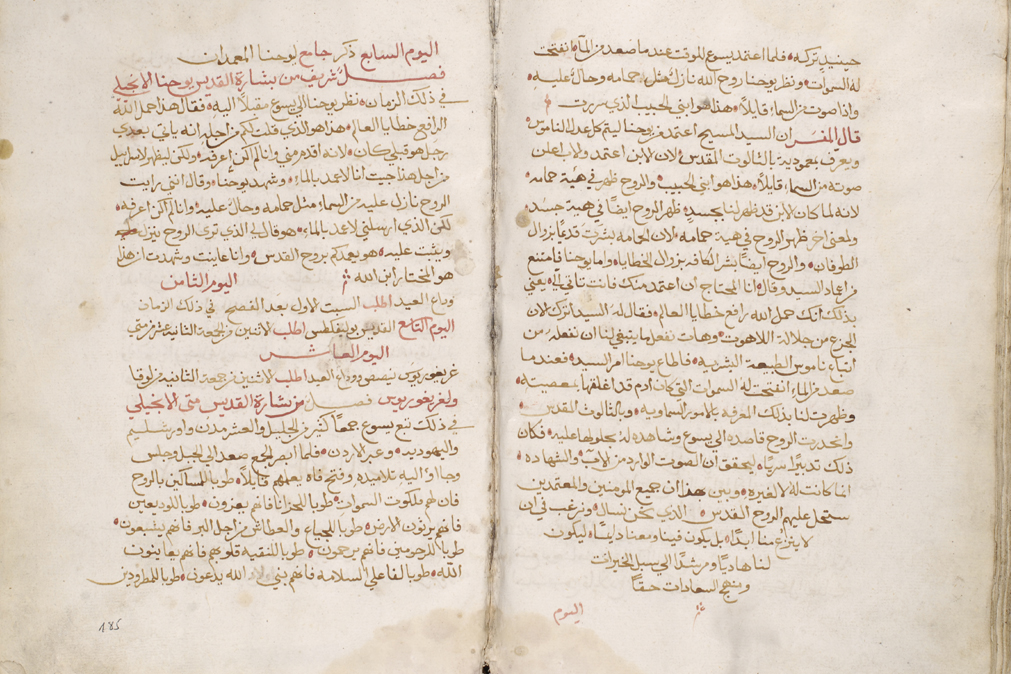 حينيدٍ تركه فلما اعتمد يسوع للوقت عند ما صعد من المآء انفتحت
له السموات ونظر يوحنا روح الله نازل مثل حمامه وحال عليه
واذا صوت من السماء قايلاً هذا هو ابني الحبيب الذي سررت
قال المفسر ان السيد المسيح اعتمد من يوحنا ليتم كل عدل الناموس
ويعرف بمعمودية بالثالوت المقدس لان الابن اعتمد والاب اعلن
صوته من السماء قايلاً هذا هو ابني الحبيب والروح ظهر في هية حمامه
لانه لما كان الابن قد ظهر لنا بجسد ظهر الروح ايضاً في هية جسد
ولمعنى اخر ظهر الروح في هية حمامه لان الحمامه بشرت قديماً بزوال
الطوفان والروح ايضاً بشر الكافه بزوال الخطايا واما يوحنا فامتنع
من اعماد السيد وقال انا المحتاج ان اعتمد منك فانت تاتي اليّ يعني
بذلك انك حمل الله رافع خطايا العالم فقال له السيد اترك الان
الجزع من جلالة اللاهوت وهات نفعل ما ينبغي لنا ان نفعله من
اتباع ناموس الطبيعة البشريه فاطاع يوحنا امر السيد فعند ما
صعد من الماء انفتحت له السموات التي كان ادم قد اغلقها بمعصيته
وظهرت لنا بذلك المعرفه بالامور السماويه وبالثالوت المقدس
وانحدرت الروح قاصده الى يسوع وشاهده له بحلولها عليه فكان
ذلك تدبيراً سرياً ليحقق ان الصوت الوارد من الاب والشهاده
انما كانت له لا لغيره وبين هذا ان جميع المومنين والمعتمدين
ستحل عليهم الروح القدس الذي نحن نسال ونرغب في ان
لا ينزع منا ابداً بل يكون فينا ومعنا دايماً ليكون
لنا هادياً ومرشداً الى سبل الخيرات
ومنهج السعادات حقاً
اليوم
اليوم السابع ذكر جامع ليوحنا المعمدان
فصل شريف من بشارة القديس يوحنا الانجيلي
في ذلك الزمان نظر يوحنا الى يسوع مقبلاً اليه فقال هذا حمل الله
الرافع خطايا العالم هذا هو الذي قلت لكم من اجله انه ياتي بعدي
رجل هو قبلي كان لانه اقدم مني وانا لم اكن اعرفه ولكن ليظهر لاسراييل
من اجل هذا جيت انا لاعمد بالماء وشهد يوحنا وقال انني رايت
الروح نازل عليه من السماء مثل حمامه وحال عليه وانا لم اكن اعرفه
لكن الذي ارسلني لاعمد بالماء هو قال لي الذي ترى الروح ينزل
ويثبت عليه هو يعمدكم بروح القدس وانا عاينت وشهدت ان هذا
هو المختار ابن الله اليوم الثامن
وداع العيد اطلب السبت الاول بعد الفصح في ذلك الزمان
اليوم التاسع القديس بوليفكطس اطلب الاثنين من الجمعة الثانية عشر من متى
اليوم العاشر
غريغوريوس نيصص ووداع العيد اطلب الاثنين من جمعة الثانية من لوقا
ولغريغوريوس فصل من بشارة القديس متى الانجيلي
في ذلك تبع يسوع جمعاً كثير من الجليل والعشر مدن واورشليم
واليهوديه وعبر الاردن فلما ابصر الجمع صعد الى الجبل وجلس
وجاا اليه تلاميده وفتح فاه يعلمهم قايلاً طوبا للمساكين بالروح
فان لهم ملكوت السموات طوبا للحزانا فانهم يعزون طوبا للوديعين
فانهم يرثون الارض طوبا للجياع والعطاش من اجل البر فانهم يشبعون
طوبا للرحومين فانهم يرحمون طوبا للنقيه قلوبهم فانهم يعاينون
الله طوبا لفاعلي السلامه فانهم بني الله يدعون طوبا للمطرودين
185